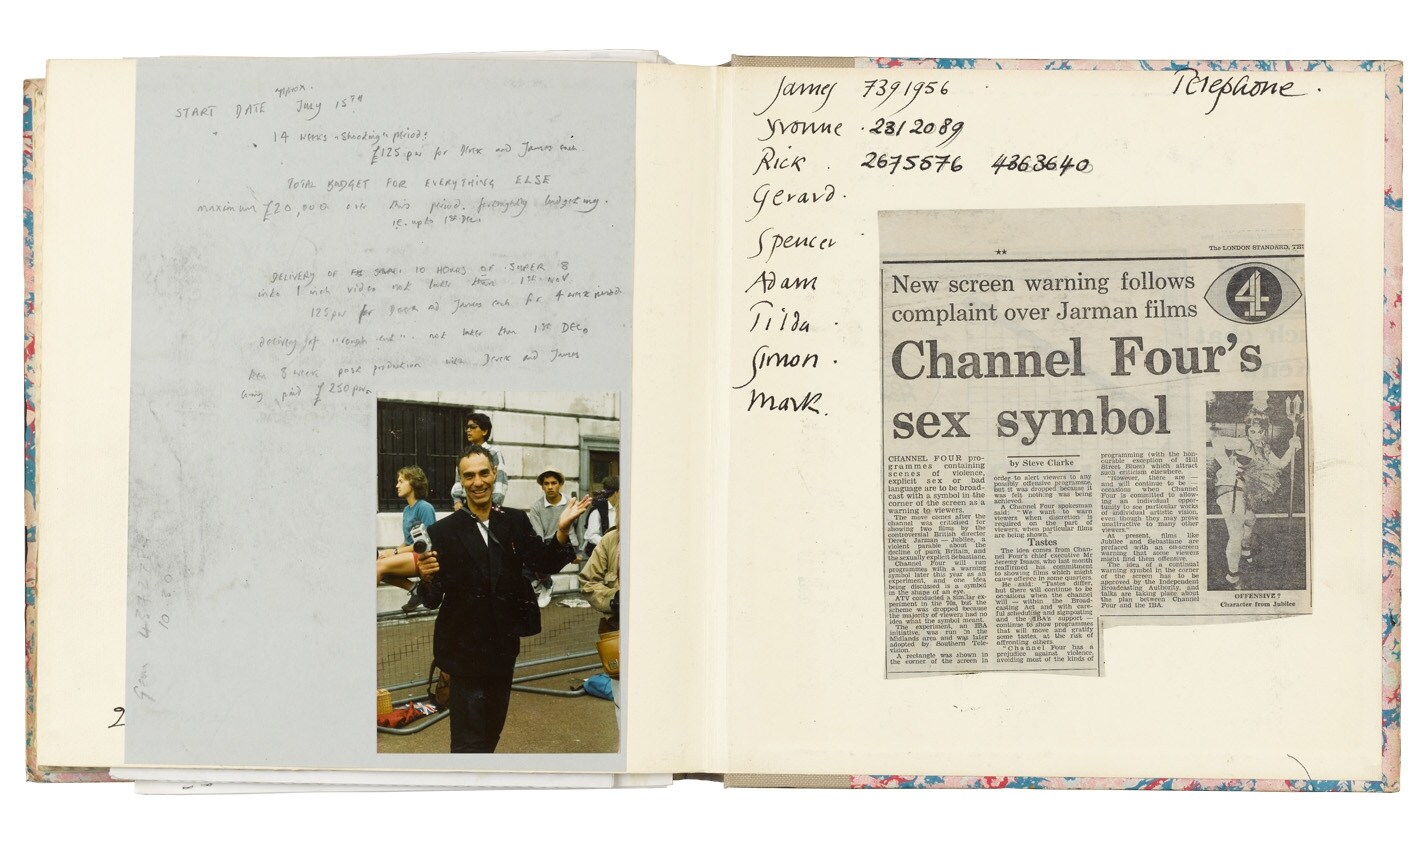 approx.
START DATE July 15TH
14 weeks "shooting" period:
£125 pw for Derek and James each.
TOTAL BUDGET FOR EVERYTHING ELSE
maximum £20,000 over this period. fortnightly budgeting.
ie. upto 1st Dec.
DELIVERY OF 10 HOURS OF SUPER 8
onto 1 inch video not later than 1st NOV
125 pw for Derek and James each for 4 week period
delivery of "rough cut" not later than 1st DEC.
then 8 week post production with Derek and James
being paid £250 pw
10
2
Telephone.
James 7391956
Yvonne 2312089
Rick 2675576 4363640
Gerard.
Spencer
Adam
Tilda
Simon.
Mark.
★★
The LONDON STANDARD, THU
New screen warning follows
complaint over Jarman films
4
Channel Four's
sex symbol
CHANNEL FOUR pro-
grammes containing
scenes of violence,
explicit sex or bad
language are to be broad-
cast with a symbol in the
corner of the screen as a
warning to viewers.
The move comes after the
channel was criticised for
showing two films by the
controversial British director
Derek Jarman — Jubilee, a
violent parable about the
decline of punk Britain, and
the sexually explicit Sebastiane.
Channel Four will run
programmes with a warning
symbol later this year as an
experiment, and one idea
being discussed is a symbol
in the shape of an eye.
ATV conducted a similar ex-
periment in the '70s, but the
scheme was dropped because
the majority of viewers had no
idea what the symbol meant.
The experiment, an IBA
initiative, was run in the
Midlands area and was later
adopted by Southern Tele-
vision.
A rectangle was shown in
the corner of the screen in
by Steve Clarke
order to alert viewers to any
possibly offensive programme,
but it was dropped because it
was felt nothing was being
achieved.
A Channel Four spokesman
said: "We want to warn
viewers when discretion is
required on the part of
viewers, when particular films
are being shown."
Tastes
The idea comes from Chan-
nel Four's chief executive Mr
Jeremy Isaacs, who last month
reaffirmed his commitment
to showing films which might
cause offence in some quarters.
He said: "Tastes differ,
but there will continue to be
occasions when the channel
will — within the Broad-
casting Act and with care-
ful scheduling and signposting
and the IBA's support —
continue to show programmes
that will move and gratify
some tastes at the risk of
affronting others.
"Channel Four has a
prejudice against violence,
avoiding most of the kinds of
programming (with the hon-
ourable exception of Hill
Street Blues) which attract
such criticism elsewhere.
"However, there are —
and will continue to be —
occasions when Channel
Four is committed to allow-
ing an individual oppor-
tunity to see particular works
of individual artistic vision,
even though they may prove
unattractive to many other
viewers."
At present, films like
Jubilee and Sebastiane are
prefaced with an on-screen
warning that some viewers
might find them offensive.
The idea of a continual
warning symbol in the corner
of the screen has to be
approved by the Independent
Broadcasting Authority, and
talks are taking place about
the plan between Channel
Four and the IBA.
OFFENSIVE?
Character from Jubilee